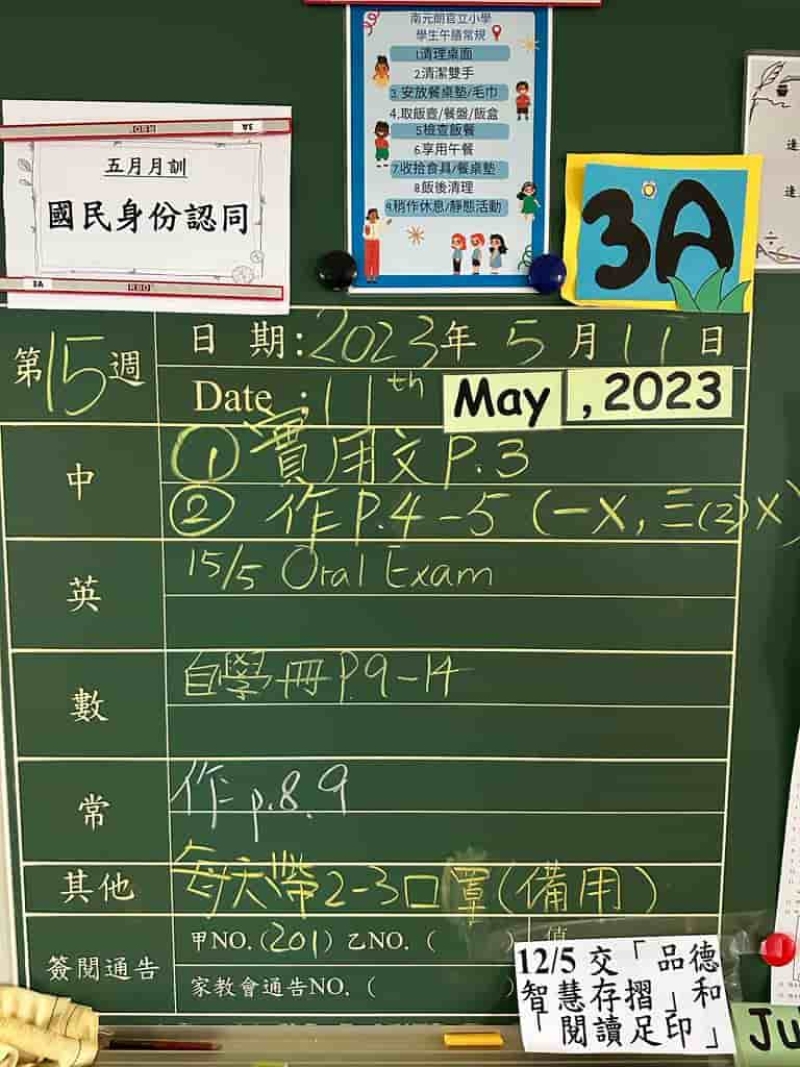 南元朗官立小學
學生午膳常規
1清理桌面
2清潔雙手
3.安放餐桌墊/毛巾
4.取飯壺/餐盤/飯盒
5檢查飯餐
6.享用午餐
7收拾食具/餐桌墊
8飯後清理
9.稍作休息/靜態活動
五月月訓
國民身份認同
3A
3A
第15週
日 期:2023年 5 月 11 日
Date : 11th May , 2023
中
① 實用文 P.3
② 作P.4-5 (一X, 三(2)X)
英
15/5 Oral Exam
數
自學冊P.9-14
常
作 p.8.9
其他
每天帶2-3口罩(備用)
簽閱通告
甲NO.(201) 乙NO. ( )
家教會通告NO. ( )
12/5 交「品德
智慧存摺」和
「閱讀足印」